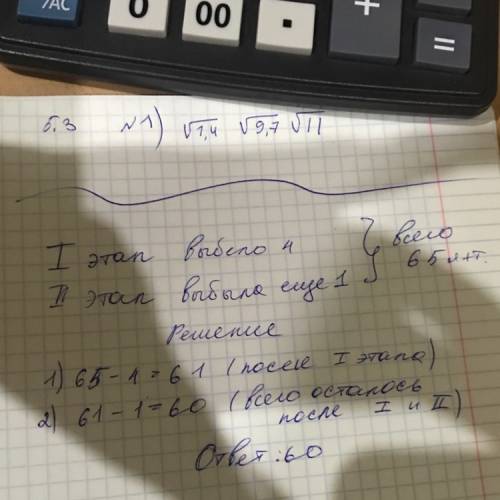 %AC 0 00 . + =
5.3 №1) √1,4 √9,7 √11
I этап выбыло 4
II этап выбыла еще 1
} всего
65 чт.
Решение
1) 65 - 4 = 61 (после I этапа)
2) 61 - 1 = 60 (всего осталось
после I и II)
Ответ: 60